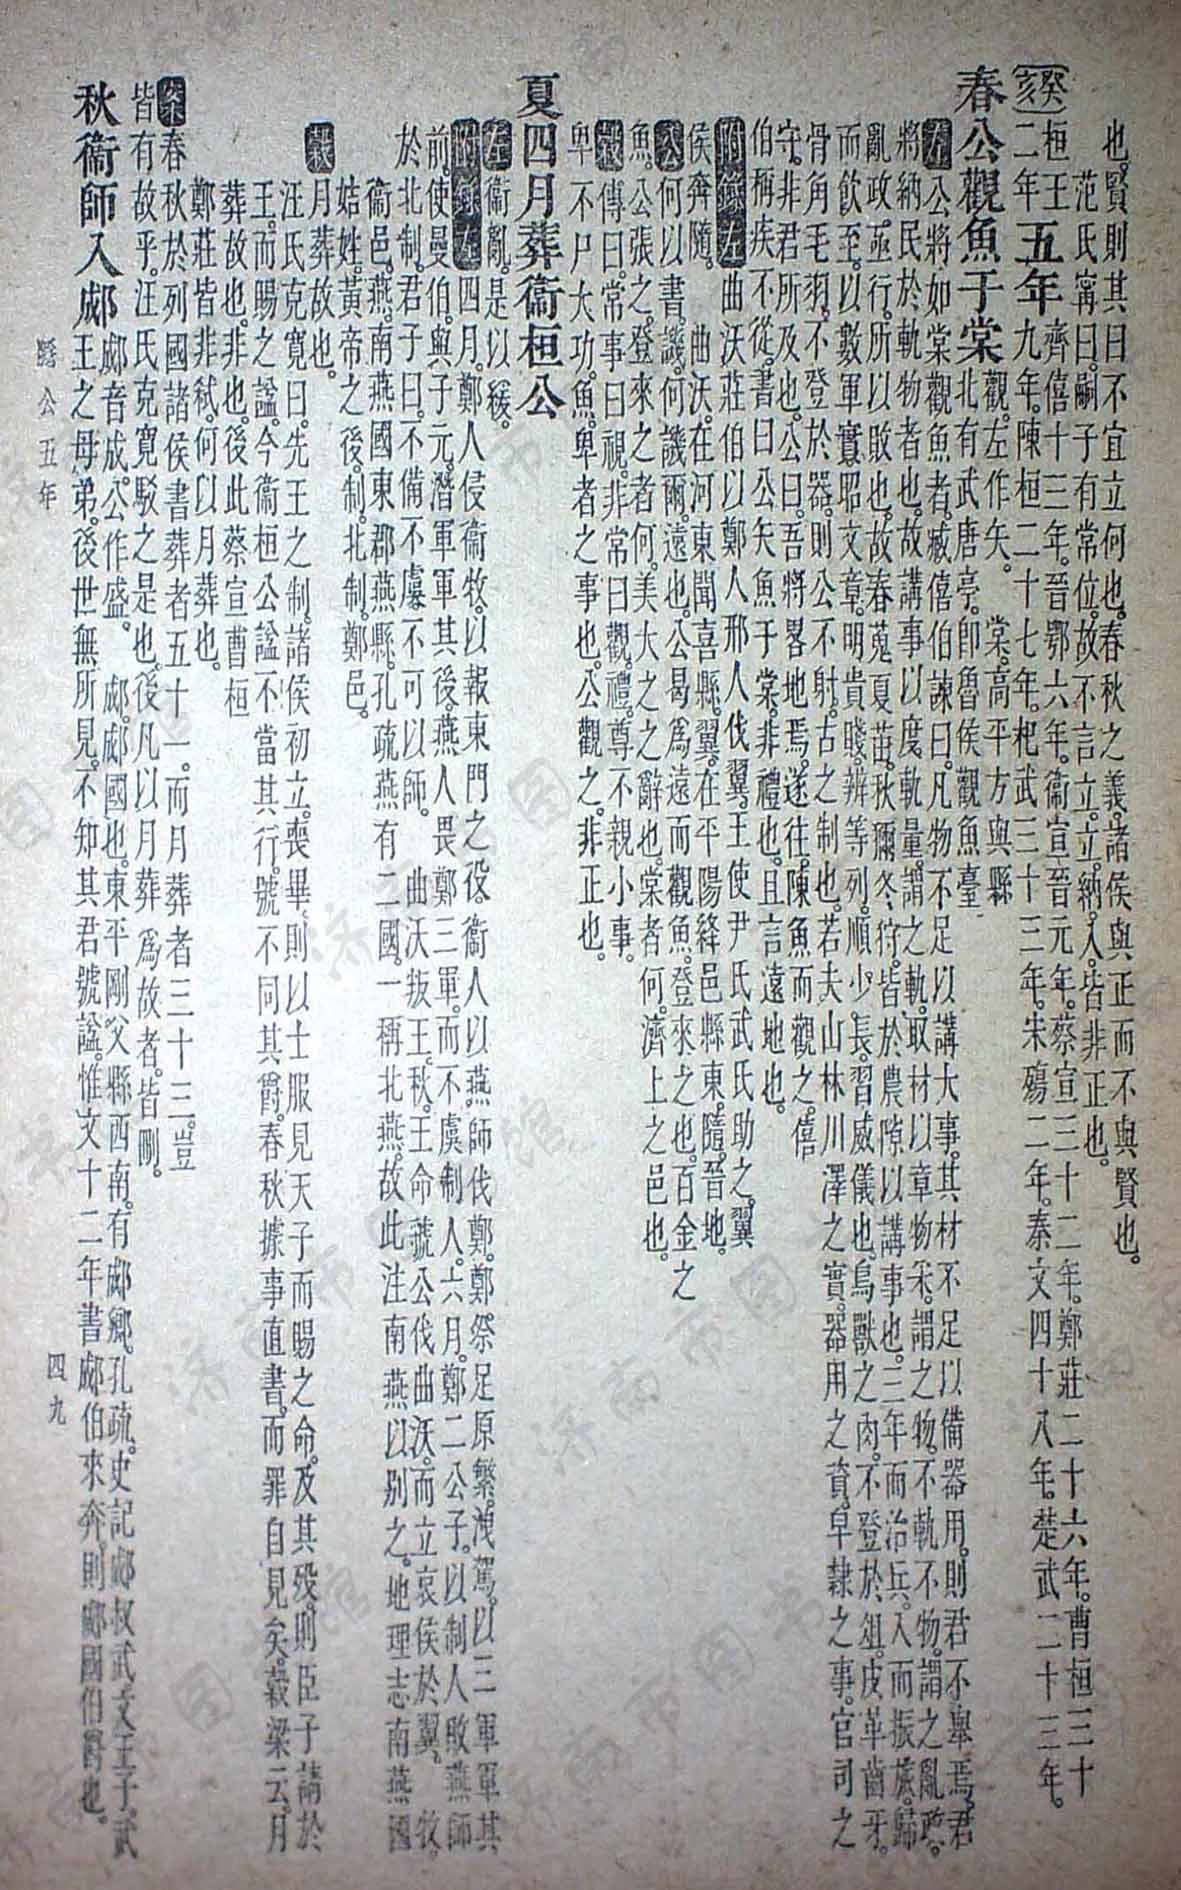 也。賢則其曰不宜立何也。春秋之義。諸侯與正而不與賢也。
范氏甯曰。嗣子有常位。故不言立。立。納。入。皆非正也。
癸亥
桓王二年
五年
齊僖十三年。晉鄂六年。衞宣晉元年。蔡宣三十二年。鄭莊二十六年。曹桓三十
九年。陳桓二十七年。杞武三十三年。宋殤二年。秦文四十八年。楚武二十三年。
春公觀魚于棠
觀。左作矢。 棠。高平方與縣
北有武唐亭。卽魯侯觀魚臺
左公將如棠觀魚者。臧僖伯諫曰。凡物不足以講大事。其材不足以備器用。則君不舉焉。君
將納民於軌物者也。故講事以度軌量。謂之軌。取材以章物采。謂之物。不軌不物。謂之亂政。
亂政亟行。所以敗也。故春蒐夏苗。秋獮冬狩。皆於農隙以講事也。三年而治兵。入而振旅。歸
而飮至。以數軍實。昭文章。明貴賤。辨等列。順少長。習威儀也。鳥獸之肉。不登於俎。皮革齒牙。
骨角毛羽。不登於器。則公不射。古之制也。若夫山林川澤之實。器用之資。皁隸之事。官司之
守。非君所及也。公曰。吾將畧地焉。遂往。陳魚而觀之。僖
伯稱疾不從。書曰公矢魚于棠。非禮也。且言遠地也。
附錄左曲沃莊伯以鄭人邢人伐翼。王使尹氏武氏助之。翼
侯奔隨。 曲沃。在河東聞喜縣。翼。在平陽絳邑縣東。隨。晉地。
公何以書。譏。何譏爾。遠也。公曷爲遠而觀魚。登來之也。百金之
魚。公張之。登來之者何。美大之之辭也。棠者何。濟上之邑也。
穀傳曰。常事曰視。非常曰觀。禮。尊不親小事。
卑不尸大功。魚。卑者之事也。公觀之。非正也。
夏四月葬衞桓公
左衞亂。是以緩。
附錄左四月。鄭人侵衞牧。以報東門之役。衞人以燕師伐鄭。鄭祭足原繁洩駕。以三軍軍其
前。使曼伯。與子元。潛軍軍其後。燕人畏鄭三軍。而不虞制人。六月。鄭二公子。以制人敗燕師
於北制。君子曰。不備不虞。不可以師。 曲沃叛王。秋。王命虢公伐曲沃。而立哀侯於翼。 牧。
衞邑。燕。南燕國。東郡燕縣。孔疏燕有二國。一稱北燕。故此注南燕以別之。地理志南燕國
姞姓。黃帝之後。制。北制。鄭邑。
穀月葬故也。
汪氏克寬曰。先王之制。諸侯初立。喪畢。則以士服見天子而賜之命。及其歿。則臣子請於
王。而賜之諡。今衞桓公諡不當其行。號不同其爵。春秋據事直書。而罪自見矣。穀梁云。月
葬故也。非也。後此蔡宣曹桓
鄭莊皆非弒。何以月葬也。
案春秋於列國諸侯書葬者五十一。而月葬者三十三。豈
皆有故乎。汪氏克寬駁之是也。後凡以月葬爲故者。皆刪。
秋衞師入郕
郕音成。公作盛。 郕。郕國也。東平剛父縣西南。有郕鄉。孔疏。史記郕叔武。文王子。武
王之母弟。後世無所見。不知其君號諡。惟文十二年書郕伯來奔。則郕國伯爵也。
隱公五年
四九